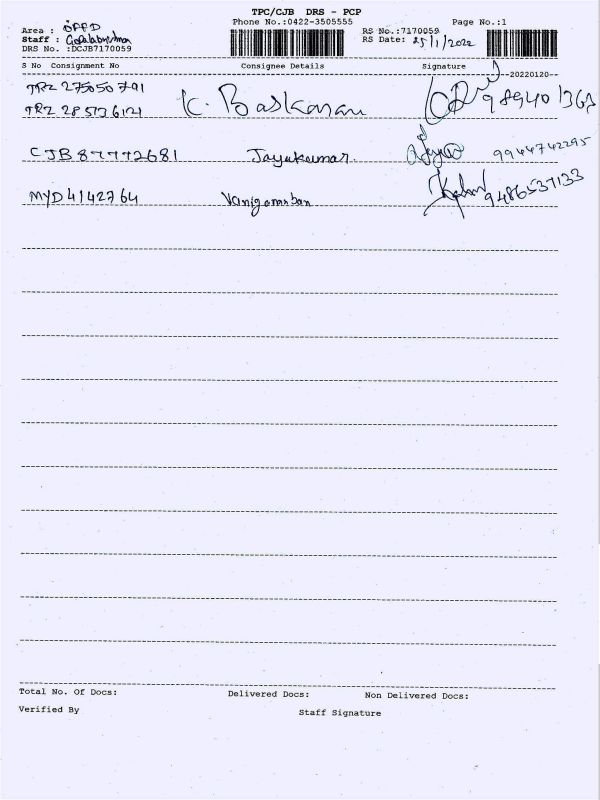 TPC/CJB DRS - PCP
Phone No.:0422-3505555 Page No.:1
Area : OPPD
Staff : Gopalakrishna
DRS No. :DCJB7170059
RS No.:7170059
RS Date: 25/1/2022
S No Consignment No Consignee Details Signature
--20220120--
TRZ 275050791
TRZ 285736121 K. Baskaran 9894013
CJB 87772681 Jayakumar. 9944742295
MYD 4142764 9486537133
Total No. Of Docs: Delivered Docs: Non Delivered Docs:
Verified By Staff Signature